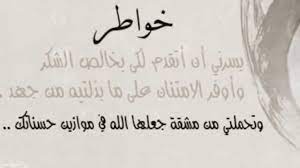 خواطر
يسرني أن أتقدم لكي بخالص الشكر
وأوفر الامتنان على ما بذلتيه من جهد .
وتحملتي من مشقة جعلها الله في موازين حسناتك ..